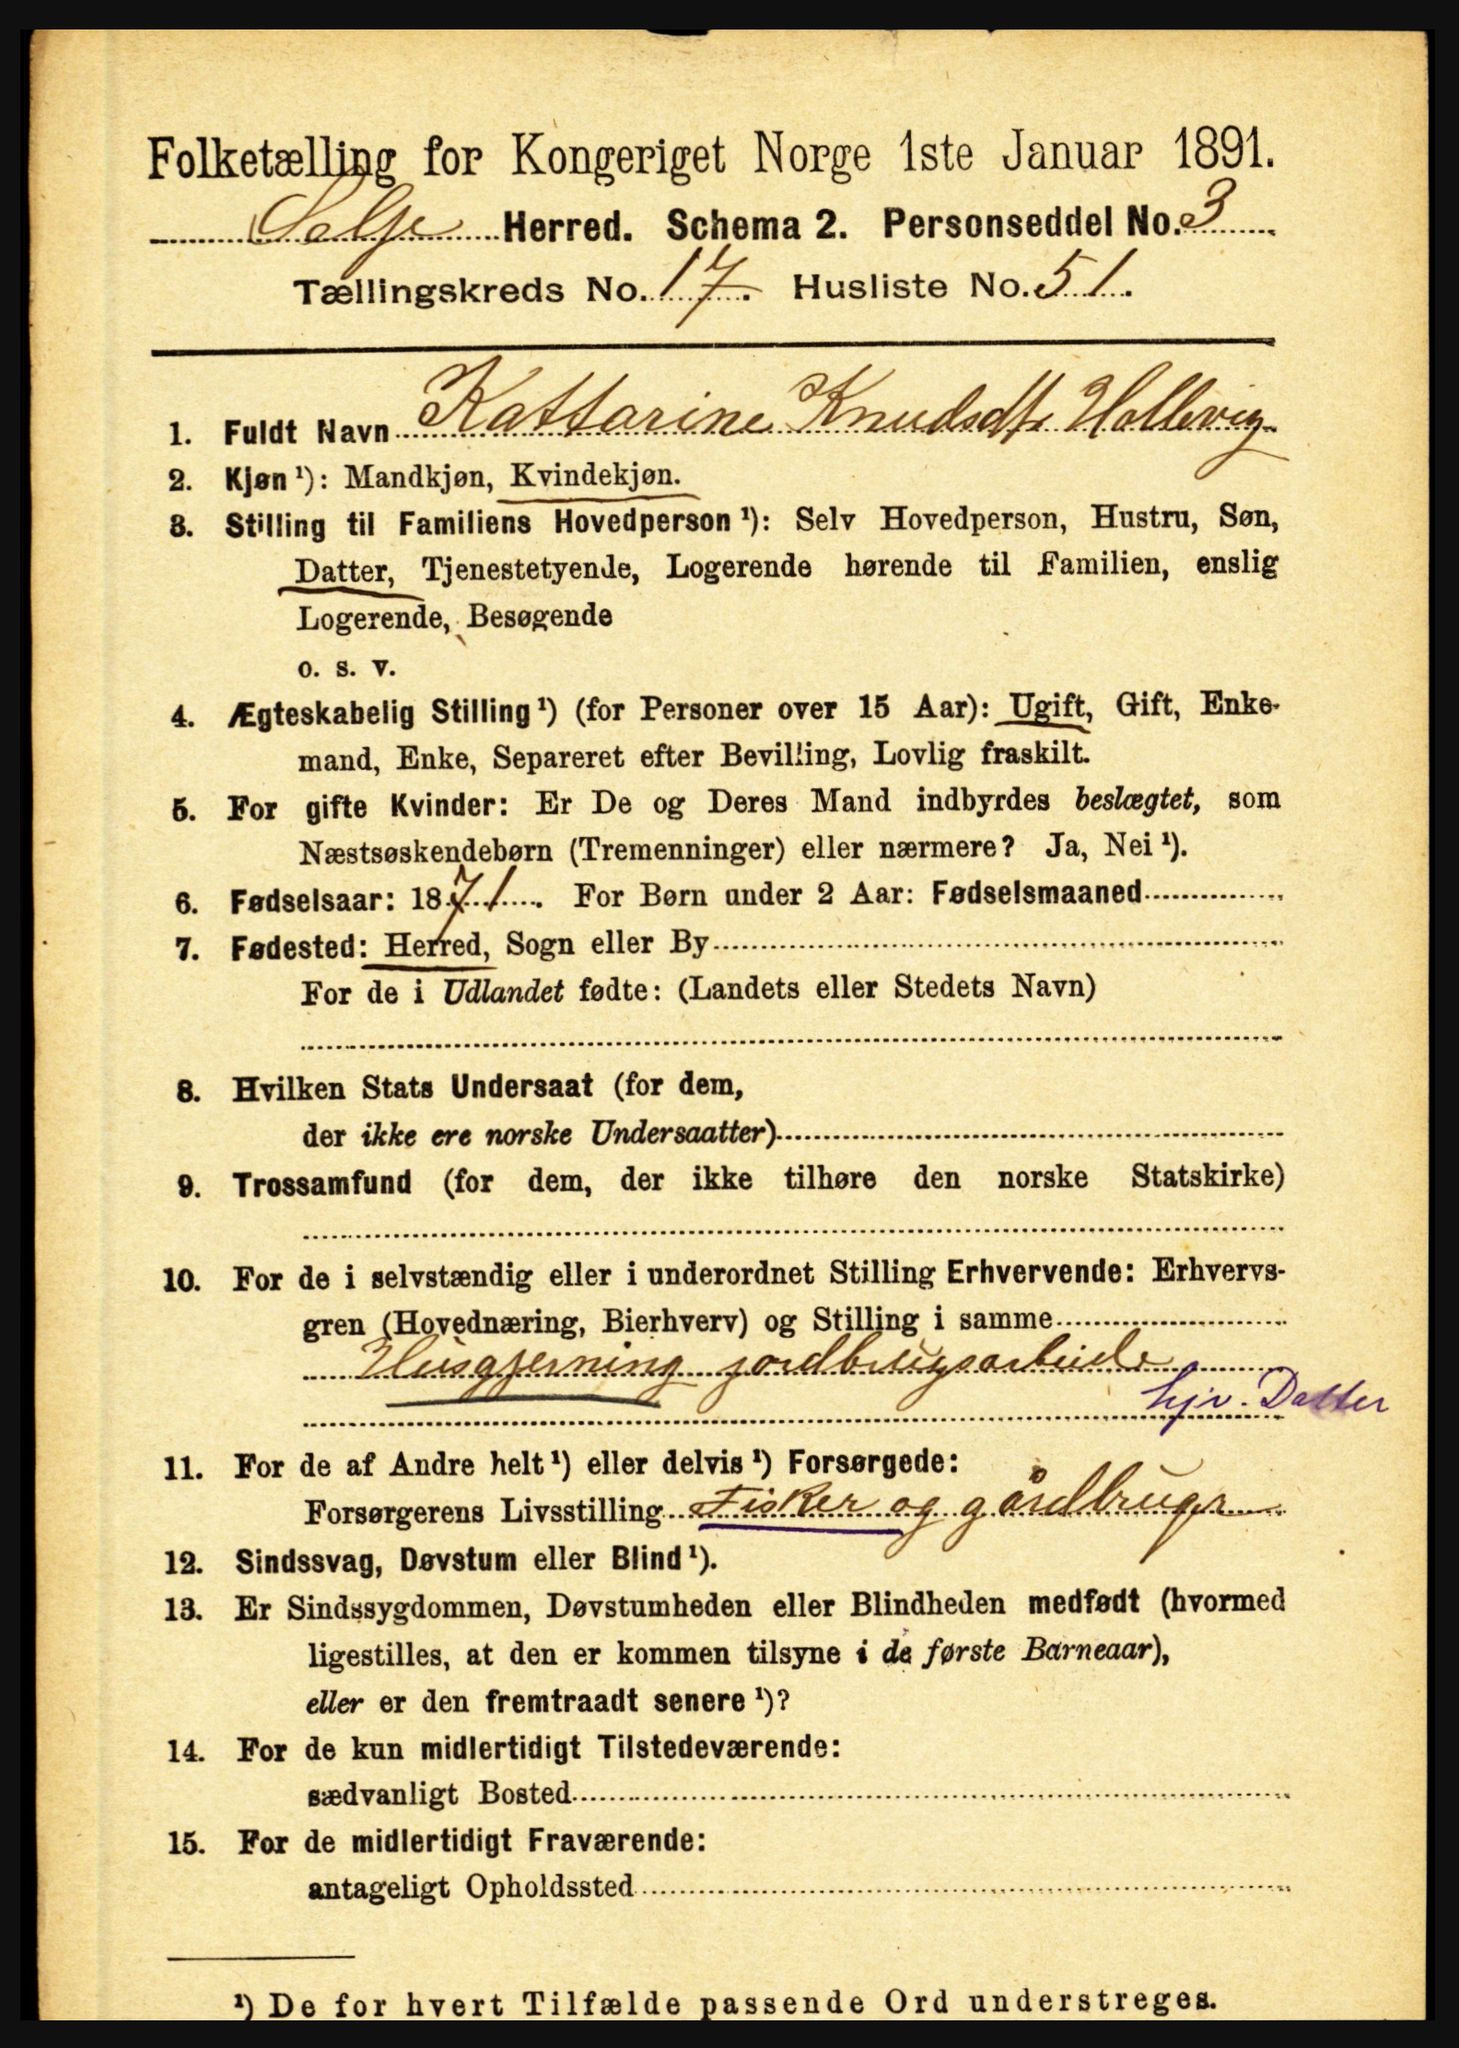 Folketælling for Kongeriget Norge 1ste Januar 1891.
Selje Herred. Schema 2. Personseddel No. 3
Tællingskreds No. 17. Husliste No. 51.
1. Fuldt Navn Kattarine Knudsdtr Hallevig
2. Kjøn ¹): Mandkjøn, Kvindekjøn.
3. Stilling til Familiens Hovedperson ¹): Selv Hovedperson, Hustru, Søn,
Datter, Tjenestetyende, Logerende hørende til Familien, enslig
Logerende, Besøgende
o. s. v.
4. Ægteskabelig Stilling ¹) (for Personer over 15 Aar): Ugift, Gift, Enke-
mand, Enke, Separeret efter Bevilling, Lovlig fraskilt.
5. For gifte Kvinder: Er De og Deres Mand indbyrdes beslægtet, som
Næstsøskendebørn (Tremenninger) eller nærmere? Ja, Nei ¹).
6. Fødselsaar: 1871. For Børn under 2 Aar: Fødselsmaaned
7. Fødested: Herred, Sogn eller By
For de i Udlandet fødte: (Landets eller Stedets Navn)
8. Hvilken Stats Undersaat (for dem,
der ikke ere norske Undersaatter)
9. Trossamfund (for dem, der ikke tilhøre den norske Statskirke)
10. For de i selvstændig eller i underordnet Stilling Erhvervende: Erhvervs-
gren (Hovednæring, Bierhverv) og Stilling i samme
Husgjerning jordbrugsarbeide
hjv. Datter
11. For de af Andre helt ¹) eller delvis ¹) Forsørgede:
Forsørgerens Livsstilling Fisker og gårdbruger
12. Sindssvag, Døvstum eller Blind ¹).
13. Er Sindssygdommen, Døvstumheden eller Blindheden medfødt (hvormed
ligestilles, at den er kommen tilsyne i de første Barneaar),
eller er den fremtraadt senere ¹)?
14. For de kun midlertidigt Tilstedeværende:
sædvanligt Bosted
15. For de midlertidigt Fraværende:
antageligt Opholdssted
¹) De for hvert Tilfælde passende Ord understreges.